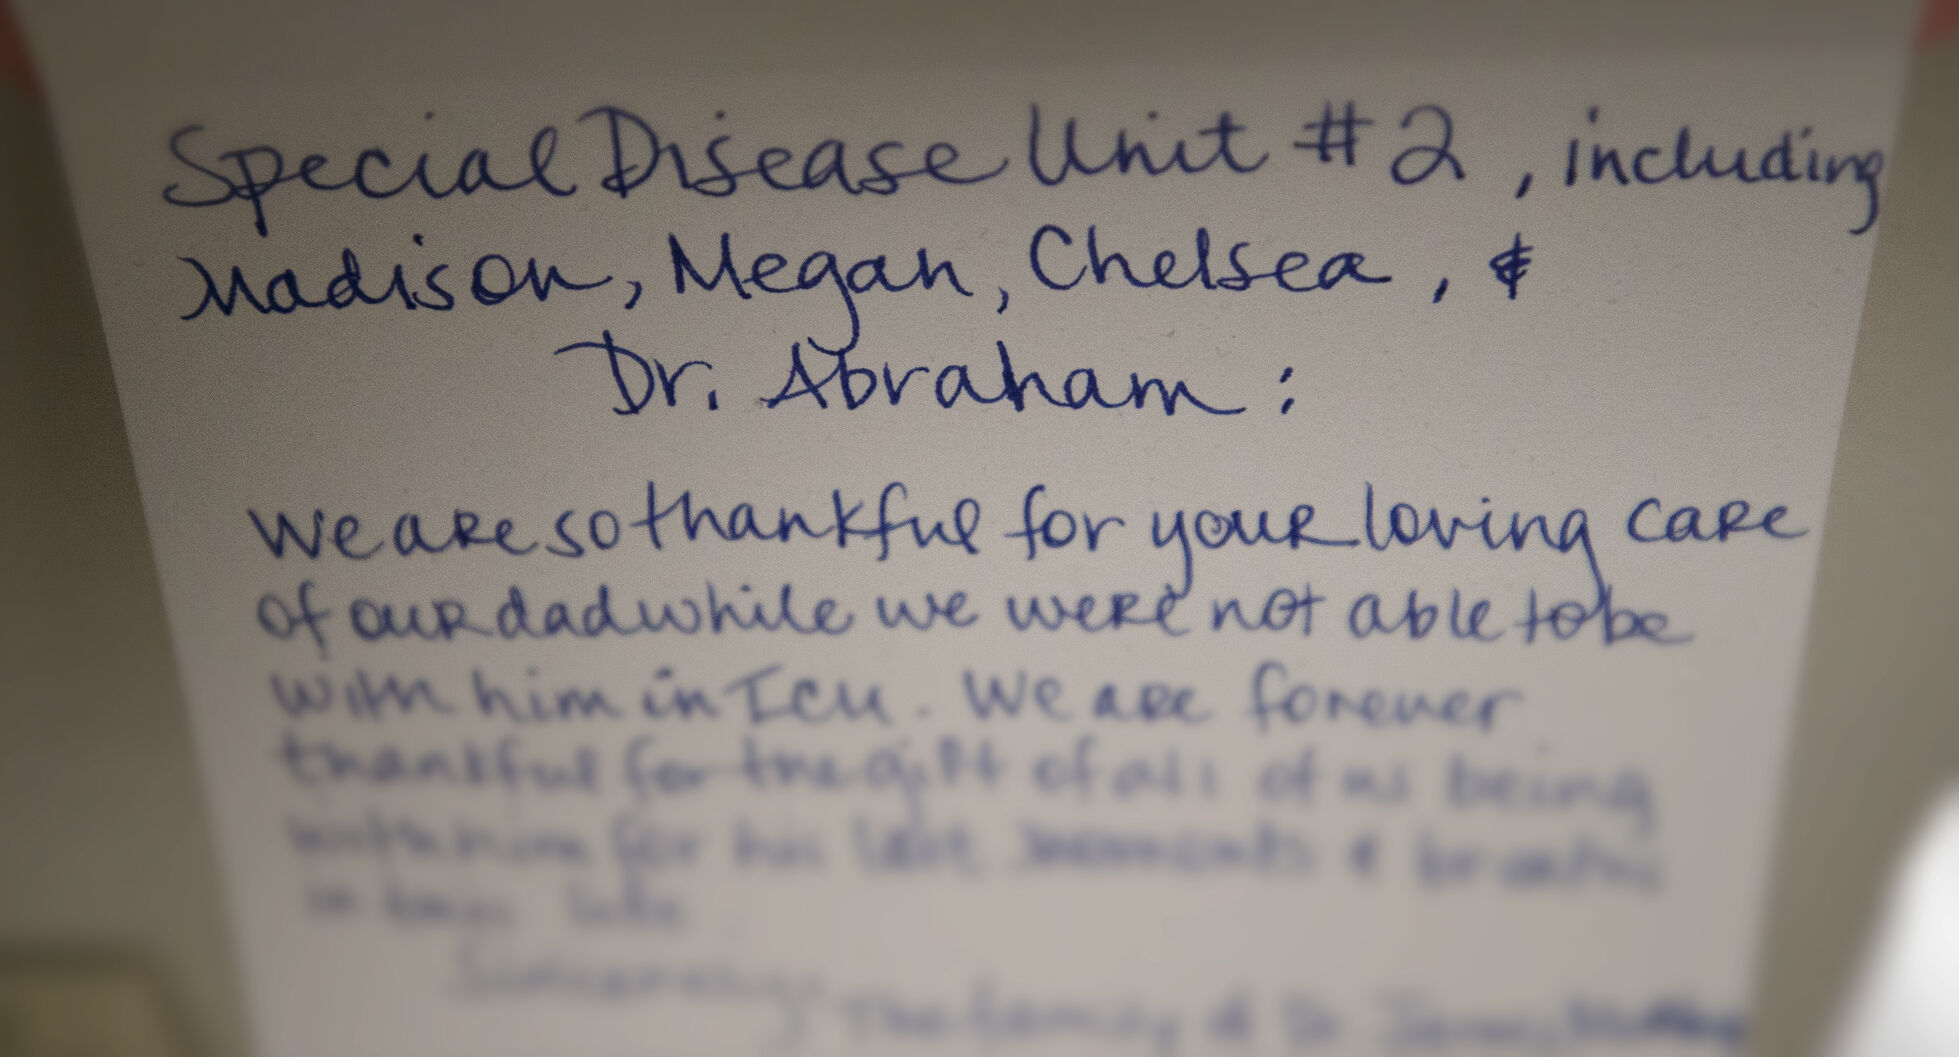 Special Disease Unit #2, including
Madison, Megan, Chelsea, &
Dr. Abraham:
We are so thankful for your loving care
of our dad while we were not able to be
with him in ICU. We are forever
thankful for the gift of all of us being
with him for his last moments & breaths
in this life
Sincerely,
The family of Dr. James